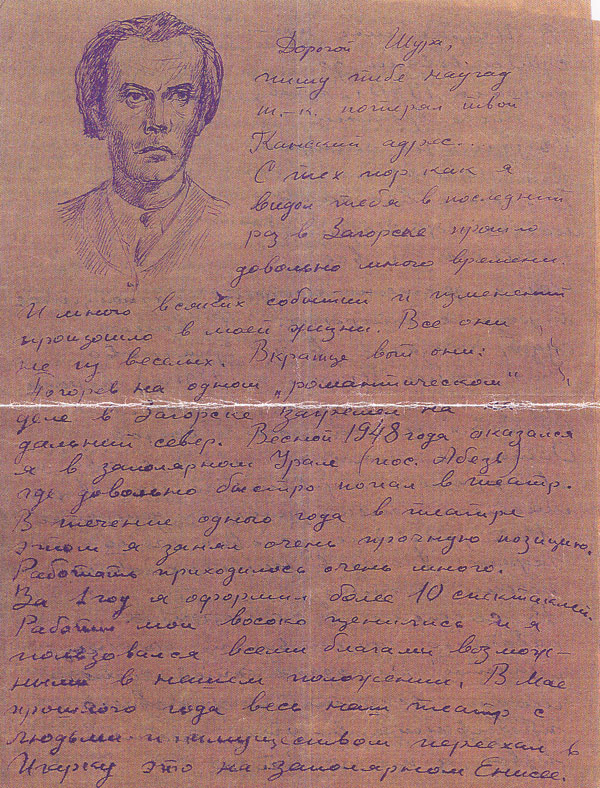 Дорогой Шура,
пишу тебе наугад
т.-к. потерял твой
Канский адрес...
С тех пор как я
видел тебя в последний
раз в Загорске прошло
довольно много времени.
И много всяких событий и изменений
произошло в моей жизни. Все они
не из веселых. Вкратце вот они:
Погорев на одном „романтическом"
деле в Загорске на
дальний север. Весной 1948 года оказался
я в заполярном Урале (пос. Абезь)
где довольно быстро попал в театр.
В течение одного года в театре
этом я занял очень прочную позицию.
Работать приходилось очень много.
За 1 год я оформил более 10 спектаклей.
Работы мои высоко ценились и я
пользовался всеми благами возмож-
ными в нашем положении. В Мае
прошлого года весь наш театр с
людьми и имуществом переехал в
Игарку это на заполярном Енисее.